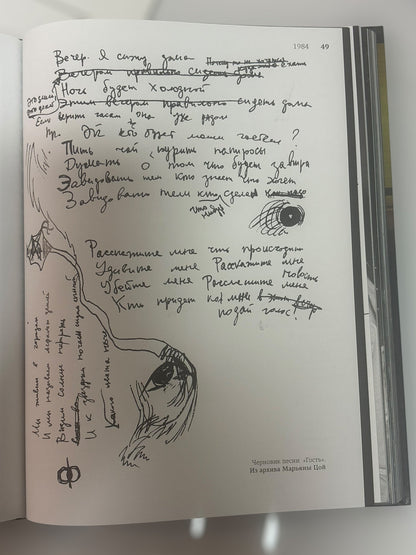 1984 49
Вечер. Я сижу дома
Вечером правильно сидеть дома
Это зима
это декабрь
Ночь будет Холодной
Этим вечером правильно сидеть дома
Если верить часам она уже рядом
Пр. Эй кто будет моим гостем?
Пить чай курить папиросы
Думать о том что будет завтра
Завидовать тем кто знает что хочет
Завидовать тем кто сделал
что-нибудь
Расскажите мне что происходит
Удивите меня Расскажите мне новость
Убейте меня Рассмешите меня
Кто придет ко мне
подай голос!
Мы живем в городах
И мы
Видим солнце
И к звездам
мать ночь
Черновик песни «Гость».
Из архива Марьяны Цой